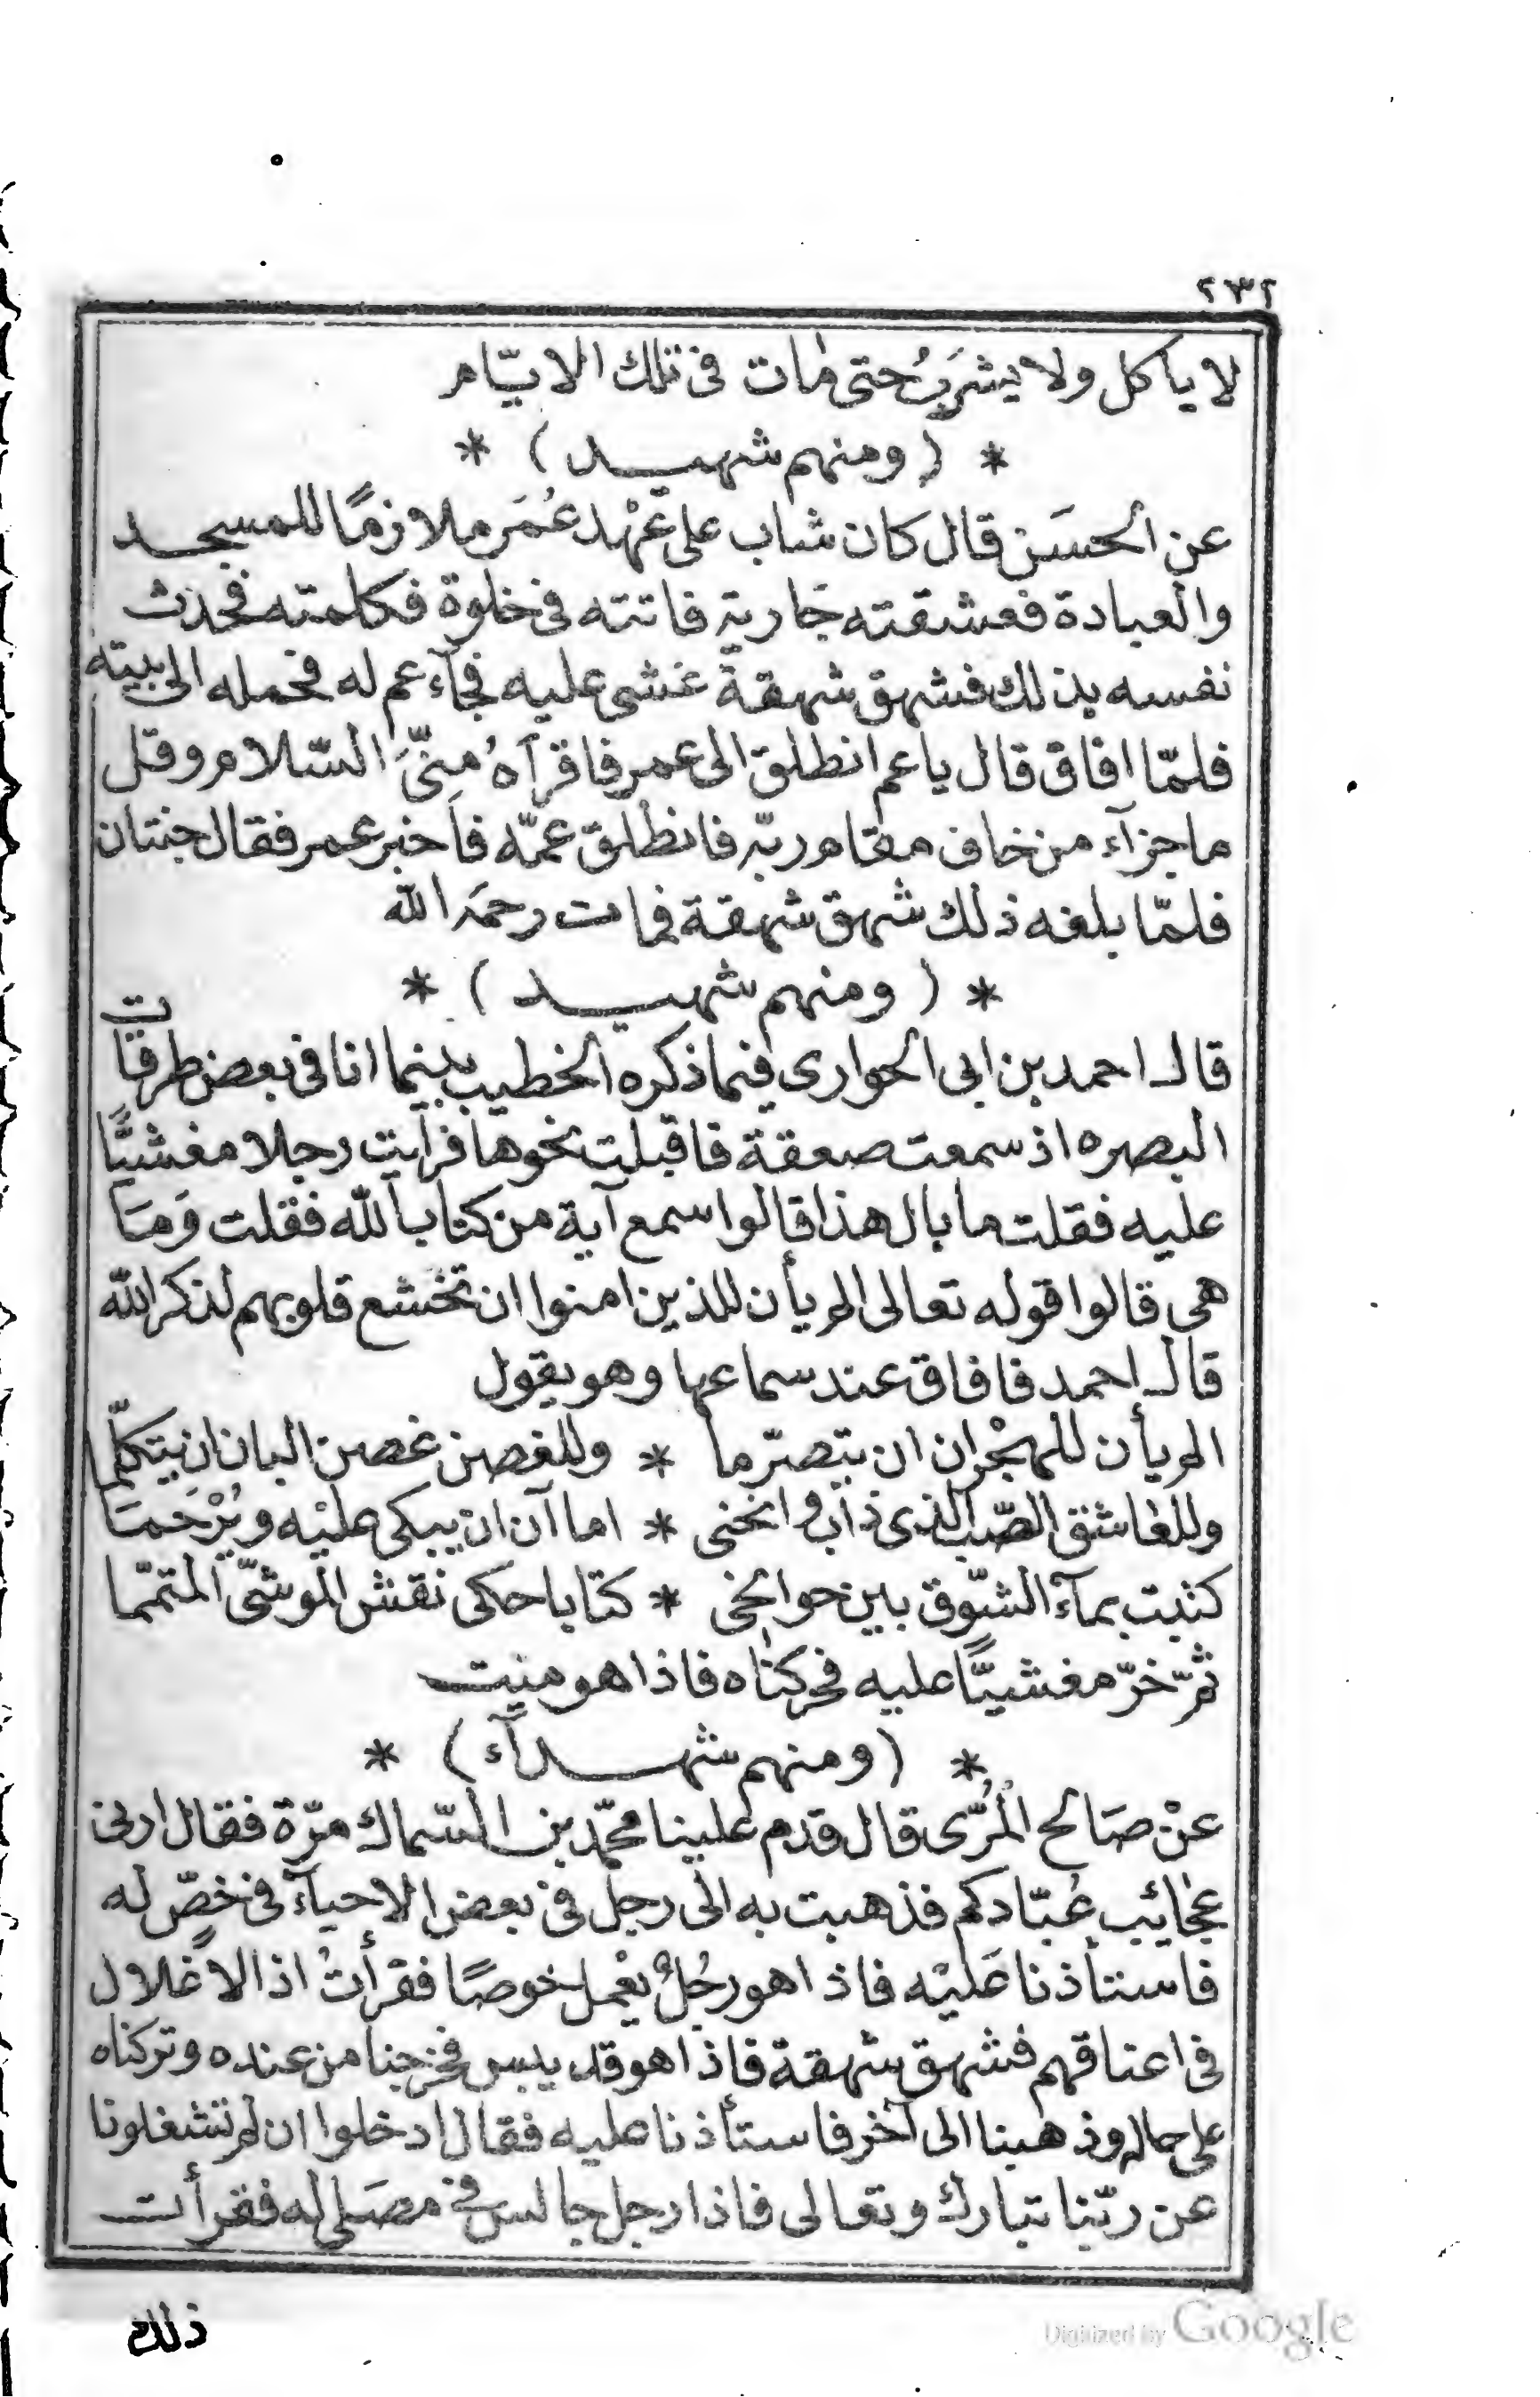 ٢٣٢
لا ياكل ولا يشرَبُ حتى مات فى تلك الايّام
* (ومنهم شهيد) *
عن الحسَن قال كان شاب على عَهْد عُمَر ملازمًا للمسجد
والعبادة فعشقته جَارية فاتته فى خلوة فكلمته فحدث
نفسه بذلك فشهق شهقة غشى عليه فجآء عم له فحمله الى بيته
فلمّا افاق قال ياعم انطلق الى عمر فاقرأهُ مِنِّىَ السّلام وقل
ماجزآء من خاف مقام ربّه فانطلق عمّه فاَخبر عمر فقال جنتان
فلمّا بلغه ذلك شهق شهقة فمات رحمَه الله
* (ومنهم شهيد) *
قال احمد بن ابى الحوارى فيما ذكره الخطيب بينما انا فى بعض طرقات
البصره اذ سمعت صعقة فاقبلت نحوها فرأيت رجلا مغشيًّا
عليه فقلت ما بال هذا قالوا سمع آية من كتاب الله فقلت وَمَا
هى قالوا قوله تعالى الم يأن للذين امنوا ان تخشع قلوبهم لذكر الله
قال احمد فافاق عند سماعها وهو يقول
الم يأن للهجْران ان يتصرّما * وللغصن غصن البان ان يتكلّما
وللعاشق الصّب الذى ذاب وانحنى * اما آن ان يبكى عليْه ويُرْحَمَا
كتبت بمآء الشّوق بين جوانحى * كتابا حكى نقش الموشّى المتمّما
ثمّ خرّ مغشيًّا عليه فحركناه فاذا هو ميت
* (ومنهم شهدآء) *
عنْ صَالح المُرّى قال قدم علينا محمّد بن السّماك مرّة فقال ارنى
عجائيب عُبّادكم فذهبت به الى رجل فى بعض الاحيآء فى خصّ له
فاستأذنا عَليْه فاذا هو رجُلٌ يعْمل خوصًا فقرأتُ اذ الاَغلال
فى اعناقهم فشهق شهقة فاذا هو قد يبس فخرجنا من عنده وتركناه
على حاله وذهبنا الى آخر فاستأذنا عليه فقال ادخلوا ان لم تشغلونا
عن ربّنا تبارك وتعالى فاذا رجل جالس فى مصَلى له فقرأت
ذلك
Digitized by Google